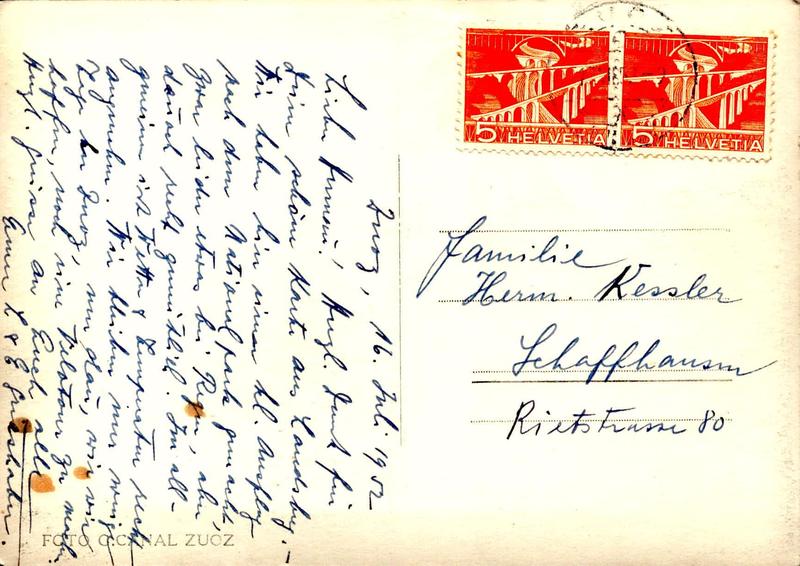 Zuoz, 16. Juli 1952
Liebe Annemi! Herzl. Dank für
Deine schöne Karte aus Landsbg. –
Wir haben hier einen kl. Ausflug
nach dem Nationalpark gemacht,
zwar leider etwas bei Regen, aber
darauf recht gemütlich. Im all-
gemeinen ist Wetter & Temperatur recht
angenehm. Wir bleiben nur wenige
Tage in Zuoz, um dann, wie wir
hoffen, noch eine Velotour zu mach.
Herzl. Grüsse an Euch alle
Eurer L & E
FOTO C. CANAL ZUOZ
5 HELVETIA
5 HELVETIA
Familie
Herm. Kessler
Schaffhausen
Rietstrasse 80